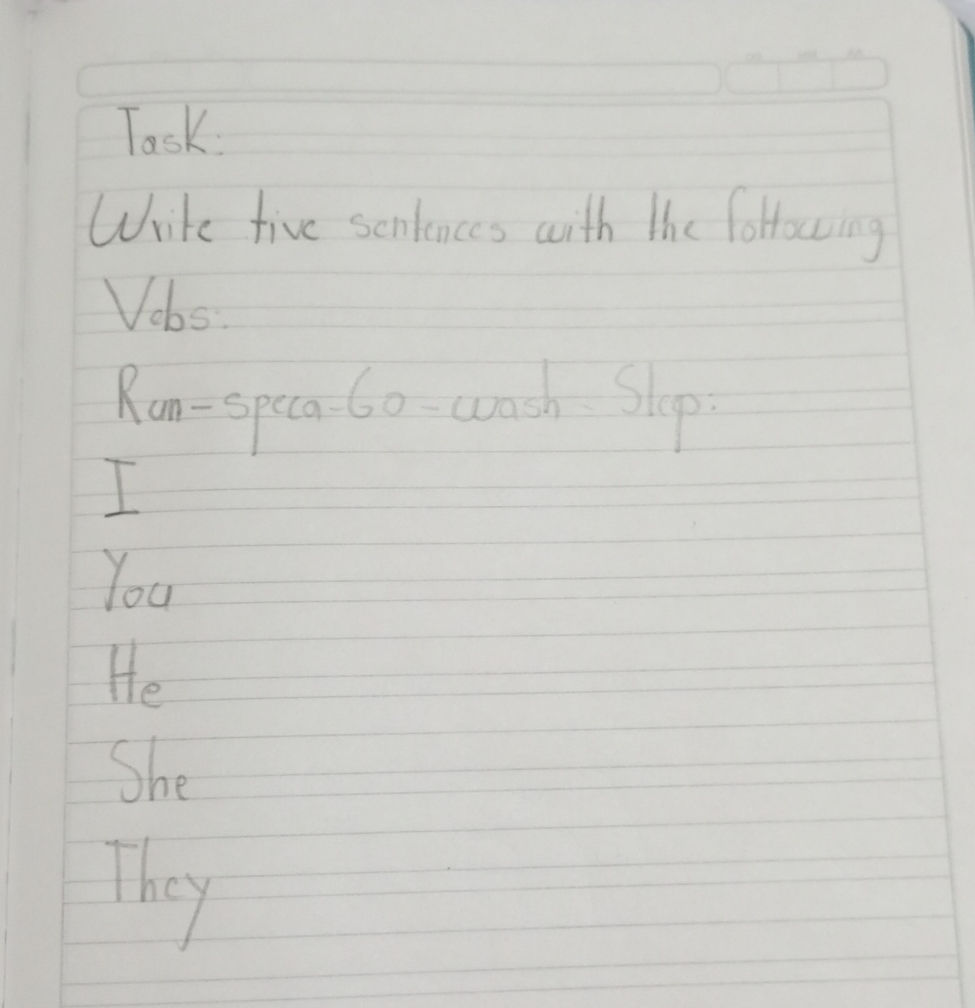 Task:
Write tive sentences with the following
Vebs:
Run-speca-Go-wash-Slep:
I
You
He
She
They